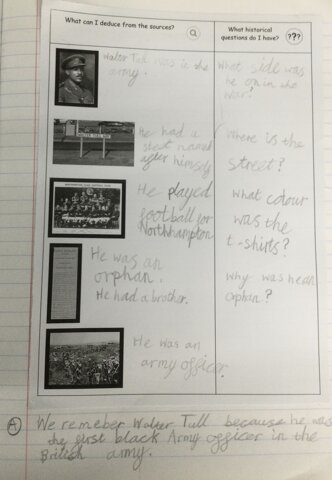 What can I deduce from the sources?
What historical
questions do I have?
???
Walter Tull was in the
army.
What side was
he on in the
war?
He had a
street named
after himself
Where is the
street?
He played
football for
Northhampton
What colour
was the
t-shirts?
He was an
orphan.
He had a brother.
Why was he an
orphan?
He was an
army officer.
A
We remeber Walter Tull because he was
the first black Army officer in the
British army.